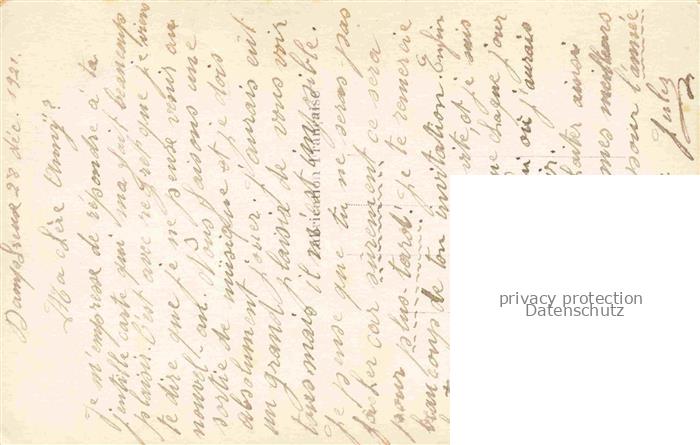 Dampvreux 28 déc. 1921.
Ma chère Anny!
Je m'empresse de répondre à ta
gentille carte qui m'a fait beaucoup
plaisir. C'est avec regret que je viens
te dire que je ne peux venir au
nouvel-an. Nous faisons une
sortie de musique et je dois
absolument jouer. J'aurais eut
un grand plaisir de vous voir
tous mais il m'est impossible.
Je pense que tu ne seras pas
facher car sûrement ce sera
pour plus tard. Je te remercie
beaucoup de ton invitation. Enfin
vite et je suis
ne chaque jour
où j'aurais
ainsi
mes meilleurs
pour l'année
Jules
Fabrication Française
privacy protection
Datenschutz